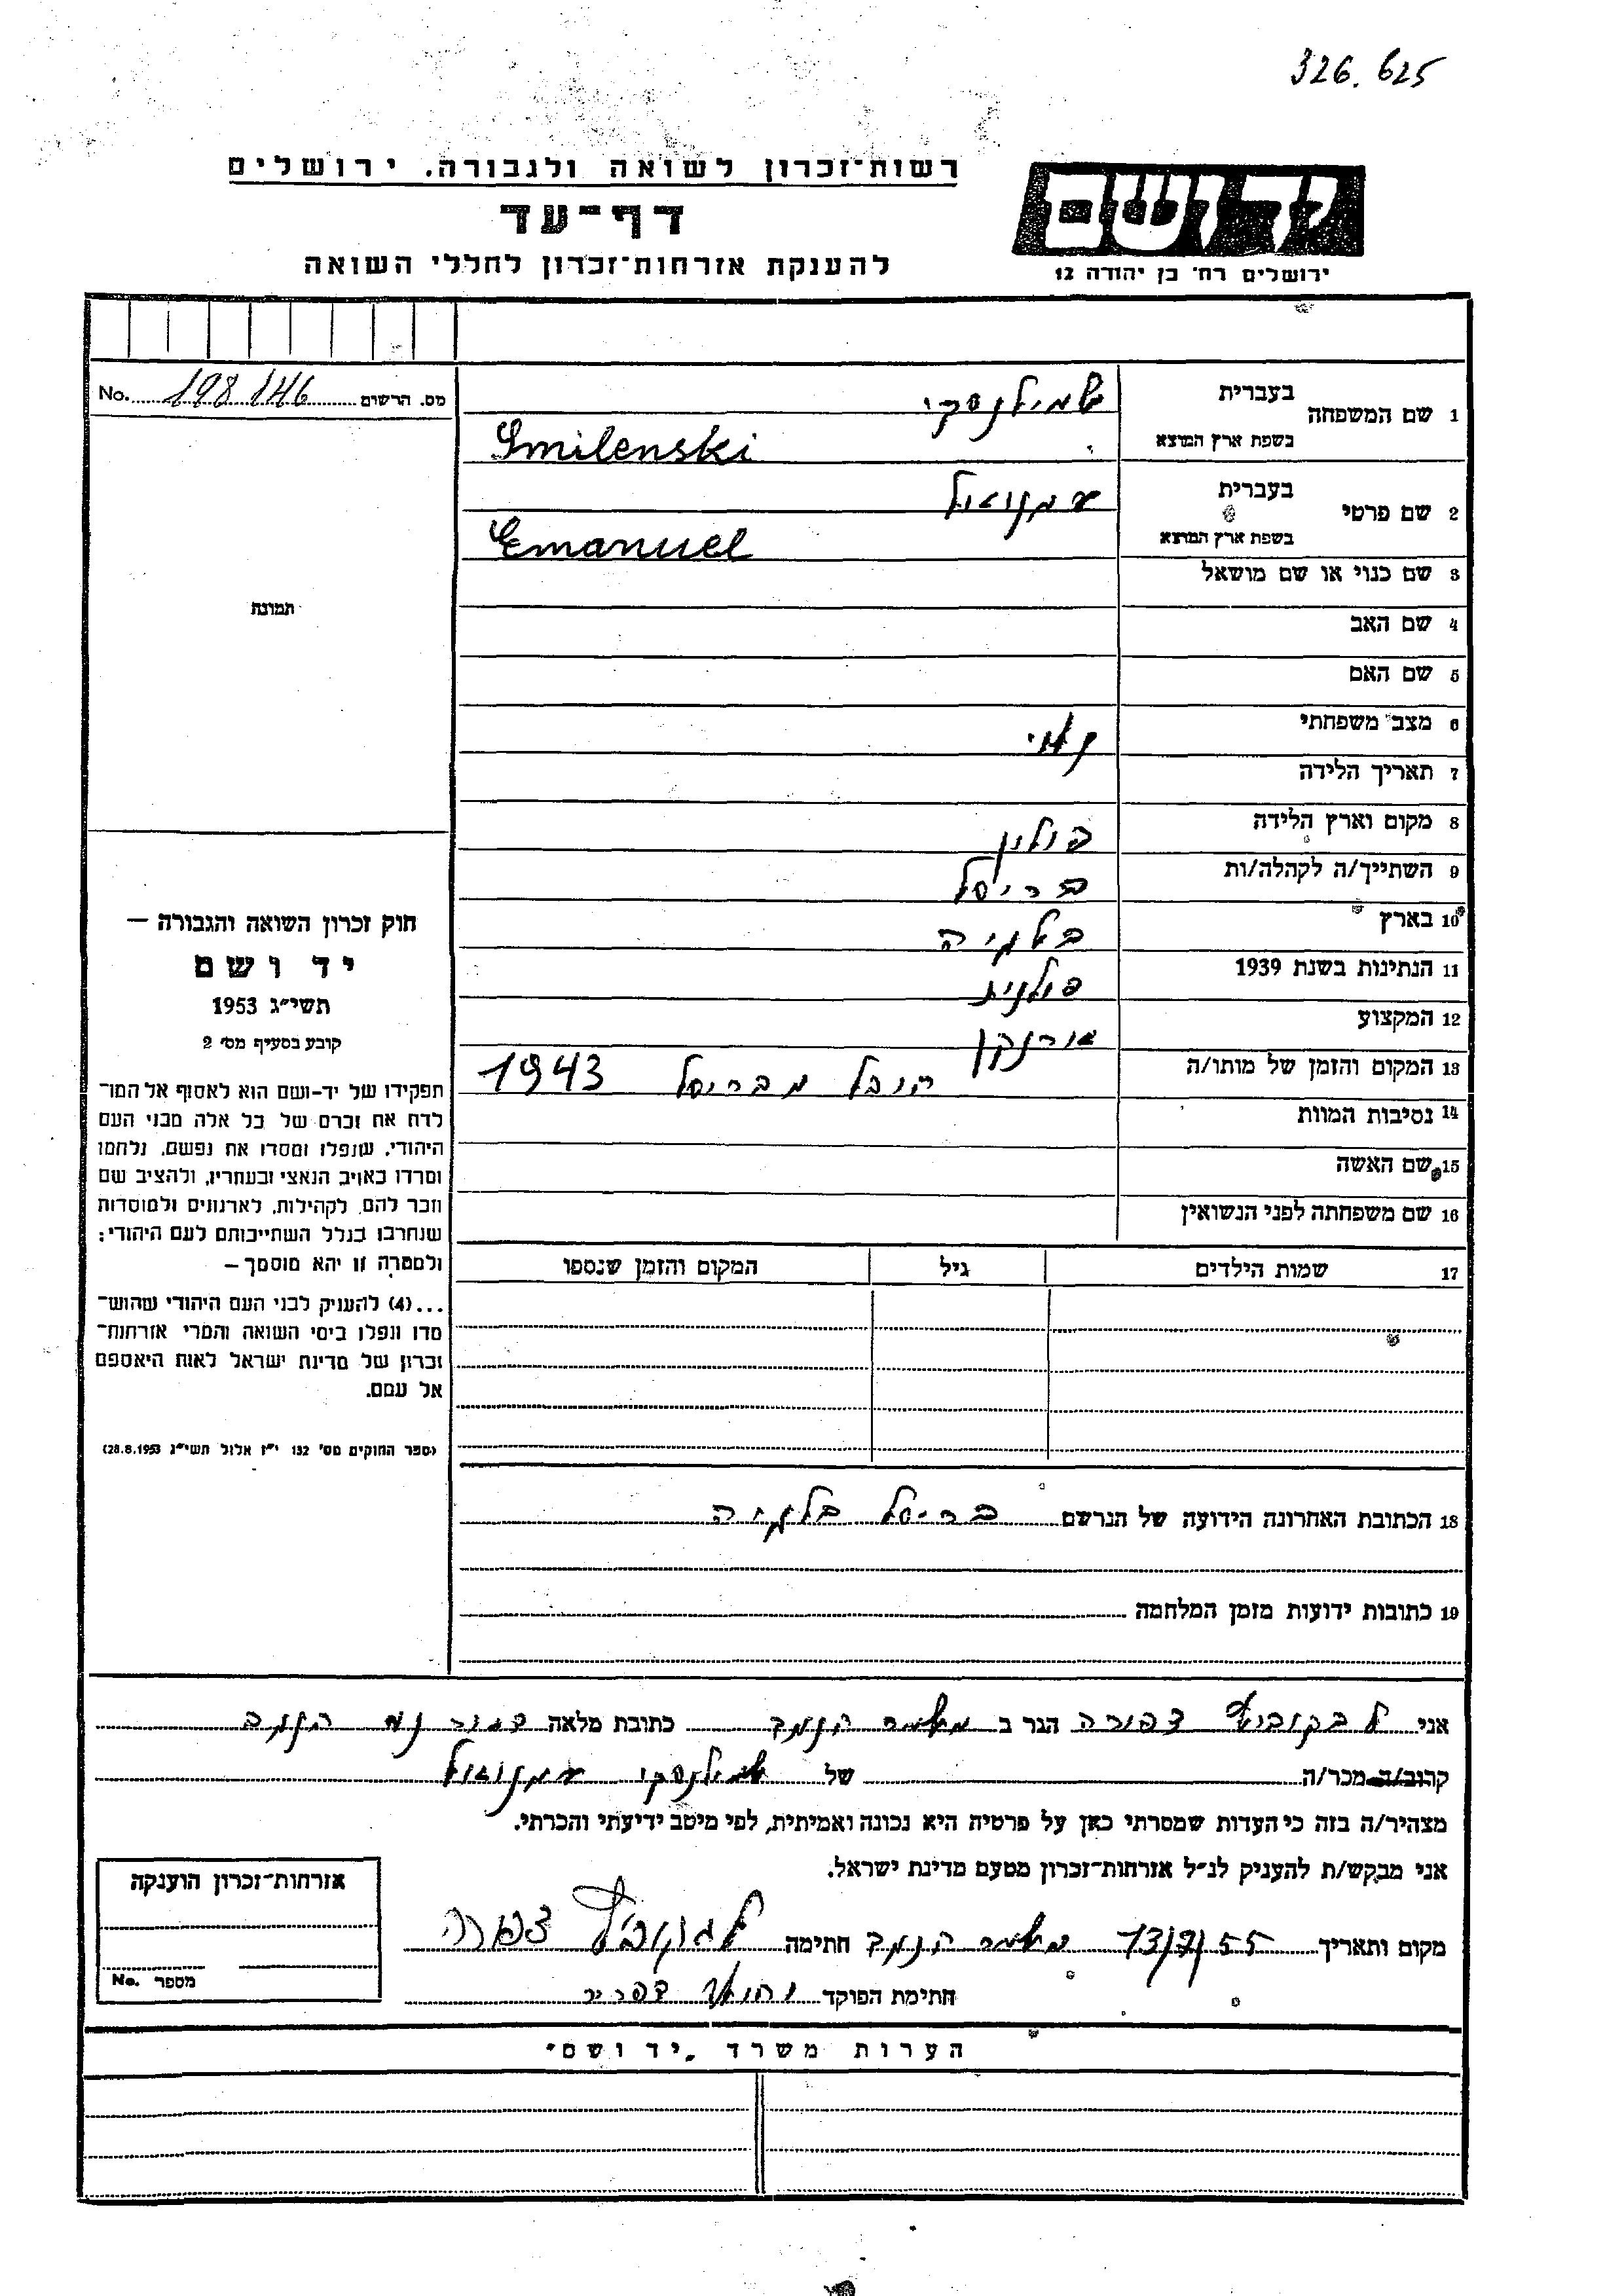 326.625
רשות־זכרון לשואה ולגבורה. ירושלים
יד ושם
דף־עד
להענקת אזרחות־זכרון לחללי השואה
ירושלים רח' בן יהודה 12
מס. הרשום 198146 No.
1 שם המשפחה בעברית שמילנסקי
בשפת ארץ המוצא Smilenski
2 שם פרטי בעברית עמנואל
בשפת ארץ המוצא Emanuel
3 שם כנוי או שם מושאל
תמונת
4 שם האב
5 שם האם
6 מצב משפחתי
7 תאריך הלידה
8 מקום וארץ הלידה פולין
9 השתייך/ה לקהלה/ות בריסל
10 בארץ בלגיה
11 הנתינות בשנת 1939 פולנית
12 המקצוע
13 המקום והזמן של מותו/ה הובל מבריסל 1943
14 נסיבות המוות
15 שם האשה
16 שם משפחתה לפני הנשואין
17 שמות הילדים גיל המקום והזמן שנספו
חוק זכרון השואה והגבורה –
יד ושם
תשי"ג 1953
קובע בסעיף מס' 2
תפקידו של יד-ושם הוא לאסוף אל המו־
לדת את זכרם של כל אלה מבני העם
היהודי, שנפלו ומסרו את נפשם, נלחמו
ומרדו באויב הנאצי ובעוזריו, ולהציב שם
וזכר להם, לקהילות, לארגונים ולמוסדות
שנחרבו בגלל השתייכותם לעם היהודי;
ולמטרה זו יהא מוסמך –
...(4) להעניק לבני העם היהודי שהוש־
מדו ונפלו בימי השואה והמרי אזרחות־
זכרון של מדינת ישראל לאות היאספם
אל עמם.
(ספר החוקים מס' 132 י"ז אלול תשי"ג 28.8.1953)
18 הכתובת האחרונה הידועה של הנרשם בריסל בלגיה
19 כתובות ידועות מזמן המלחמה
אני לבקוביץ צפורה הגר ב משמר הנגב כתובת מלאה דואר נע הנגב
קרוב/ה מכר/ה של שמילנסקי עמנואל
מצהיר/ה בזה כי העדות שמסרתי כאן על פרטיה היא נכונה ואמיתית, לפי מיטב ידיעתי והכרתי.
אני מבקש/ת להעניק לנ"ל אזרחות־זכרון מטעם מדינת ישראל.
מקום ותאריך 13/7/55 משמר הנגב חתימה לבקוביץ צפורה
חתימת הפוקד
אזרחות־זכרון הוענקה
מספר No.
הערות משרד "יד ושם"